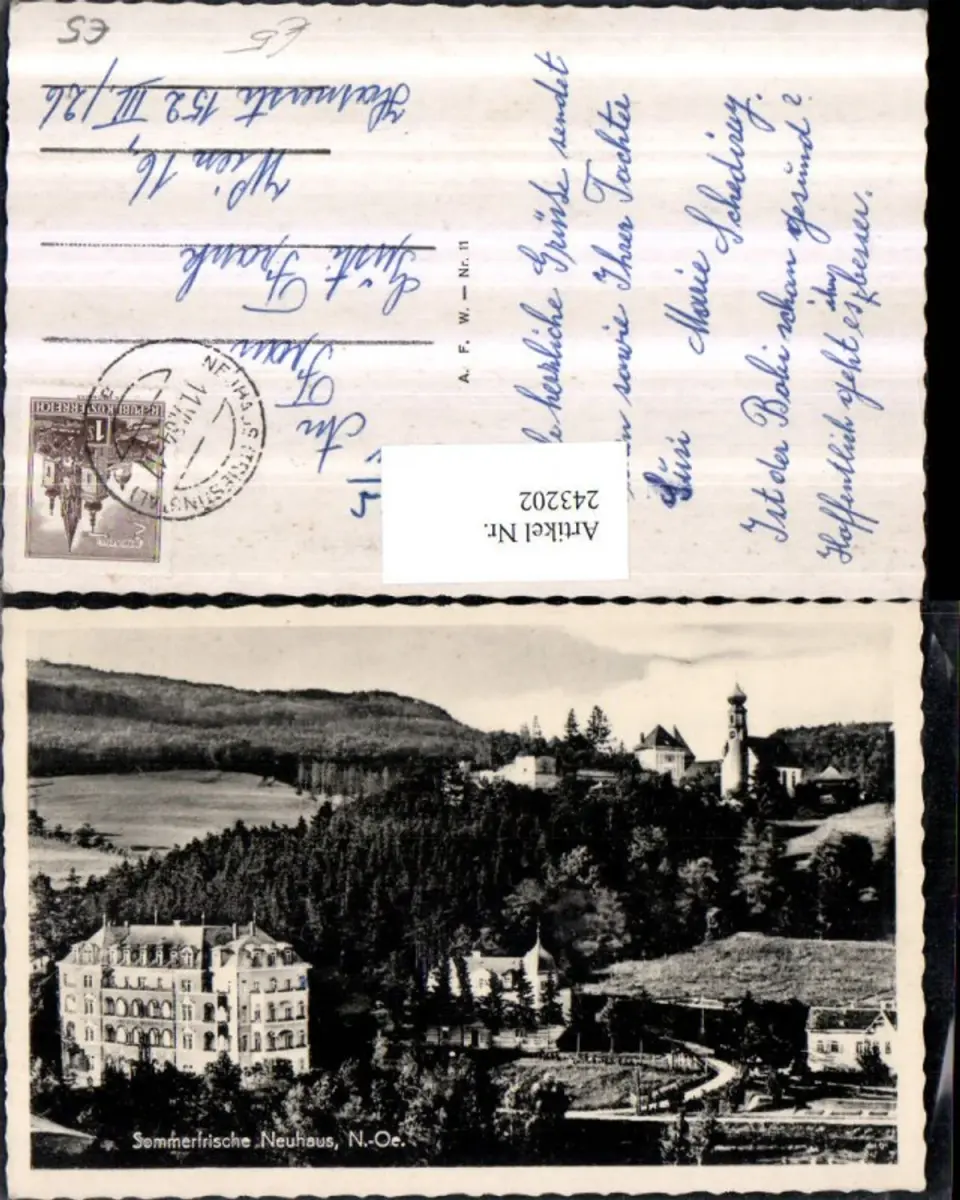 Viele herzliche Grüsse sendet
Ihnen sowie Ihrer Tochter
Susi Marie Schedirey.
Ist der Bobi schon gesund?
Hoffentlich geht es ihm besser.
A. F. W. — Nr. 11
An
Frau
Gusti Frank
Wien 16,
Hasnerstr. 152 III./26
REPUBLIK ÖSTERREICH
NEUHAUS (TRIESTINGTAL)
Artikel Nr.
243202
£5
£5
Sommerfrische Neuhaus, N.-Oe.